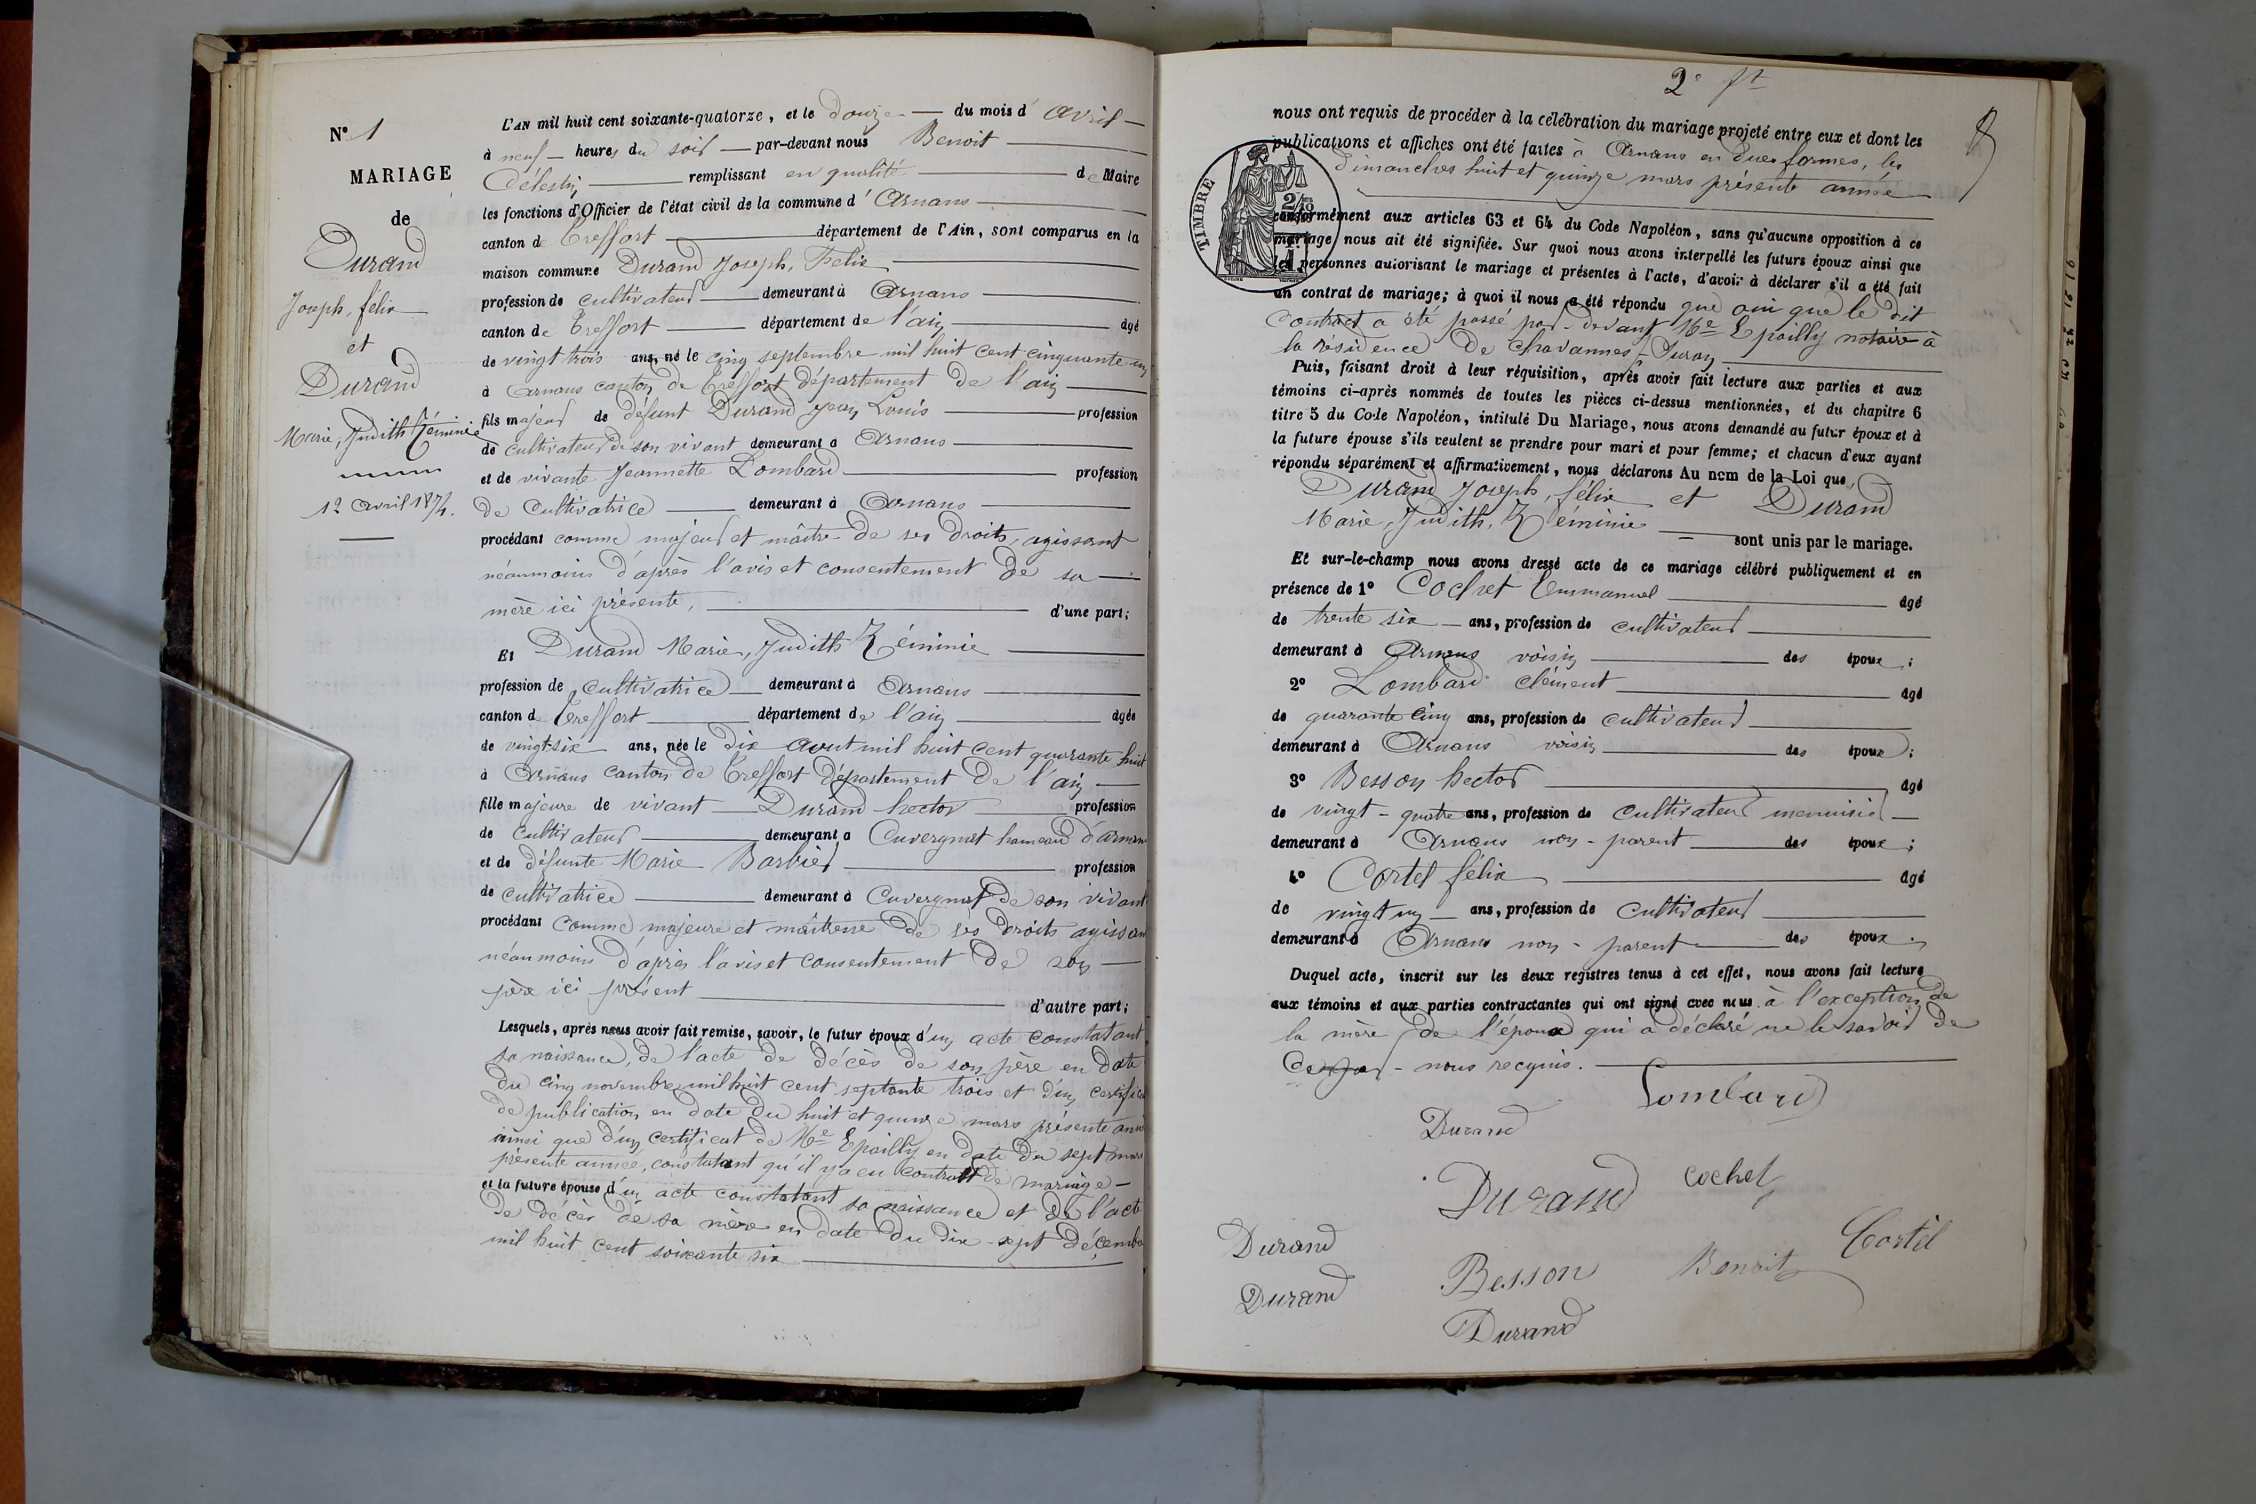 N° 1
MARIAGE
de
Durand
Joseph, félix
et
Durand
Marie, Judith Zéminie
12 avril 1874.
L'AN mil huit cent soixante-quatorze, et le douze du mois d'avril
à neuf heures du soir par-devant nous Benoit
Célestin remplissant en qualité de Maire
les fonctions d'Officier de l'état civil de la commune d'Arnans
canton de Treffort département de l'Ain, sont comparus en la
maison commune Durand Joseph, Felix
profession de cultivateur demeurant à Arnans
canton de Treffort département de l'ain âgé
de vingt trois ans, né le cinq septembre mil huit cent cinquante un
à Arnans canton de Treffort département de l'ain
fils majeur de défunt Durand Jean Louis profession
de cultivateur de son vivant demeurant à Arnans
et de vivante Jeannette Lombard profession
de Cultivatrice demeurant à Arnans
procédant comme majeur et maître de ses droits, agissant
néanmoins d'après l'avis et consentement de sa
mère ici présente, d'une part;
Et Durand Marie, Judith Zéminie
profession de cultivatrice demeurant à Arnans
canton de Treffort département de l'ain âgée
de vingt-six ans, née le dix aout mil huit cent quarante huit
à Arnans canton de Treffort département de l'ain
fille majeure de vivant Durand hector profession
de cultivateur demeurant à Cuvergnat hameau d'arnans
et de défunte Marie Barbier profession
de cultivatrice demeurant à Cuvergnat de son vivant
procédant comme majeure et maîtresse de ses droits agissant
néanmoins d'après l'avis et consentement de son
père ici présent d'autre part;
Lesquels, après nous avoir fait remise, savoir, le futur époux d'un acte constatant
sa naissance, de l'acte de décès de son père en date
du cinq novembre mil huit cent septante trois et d'un certificat
de publication en date du huit et quinze mars présente année
ainsi que d'un certificat de Me Epailly en date du sept mars
présente année, constatant qu'il y a eu contrat de mariage
et la future épouse d'un acte constatant sa naissance et de l'acte
de décès de sa mère en date du dix-sept décembre
mil huit cent soixante six
2e ft
nous ont requis de procéder à la célébration du mariage projeté entre eux et dont les
publications et affiches ont été faites à Arnans en dues formes, les
dimanches huit et quinze mars présente année
TIMBRE
conformément aux articles 63 et 64 du Code Napoléon, sans qu'aucune opposition à ce
mariage nous ait été signifiée. Sur quoi nous avons interpellé les futurs époux ainsi que
les personnes autorisant le mariage et présentes à l'acte, d'avoir à déclarer s'il a été fait
un contrat de mariage; à quoi il nous a été répondu que oui que le dit
Contract a été passé par-devant Me Epailly notaire à
la résidence de Chavannes-Suran
Puis, faisant droit à leur réquisition, après avoir fait lecture aux parties et aux
témoins ci-après nommés de toutes les pièces ci-dessus mentionnées, et du chapitre 6
titre 5 du Code Napoléon, intitulé Du Mariage, nous avons demandé au futur époux et à
la future épouse s'ils veulent se prendre pour mari et pour femme; et chacun d'eux ayant
répondu séparément et affirmativement, nous déclarons Au nom de la Loi que,
Durand Joseph, félix et Durand
Marie, Judith, Zéminie sont unis par le mariage.
Et sur-le-champ nous avons dressé acte de ce mariage célébré publiquement et en
présence de 1° Cochet Emmanuel âgé
de trente six ans, profession de cultivateur
demeurant à Arnans voisin des époux;
2° Lombard clément âgé
de quarante cinq ans, profession de cultivateur
demeurant à Arnans voisin des époux;
3° Besson hector âgé
de vingt-quatre ans, profession de cultivateur menuisier
demeurant à Arnans non-parent des époux;
4° Cortel félix âgé
de vingt un ans, profession de cultivateur
demeurant à Arnans non-parent des époux.
Duquel acte, inscrit sur les deux registres tenus à cet effet, nous avons fait lecture
aux témoins et aux parties contractantes qui ont signé avec nous à l'exception de
la mère de l'époux qui a déclaré ne le savoir de
ce par nous requis.
Lombard
Durand
Durand Cochet
Durand Cortel
Durand Besson Benoit
Durand